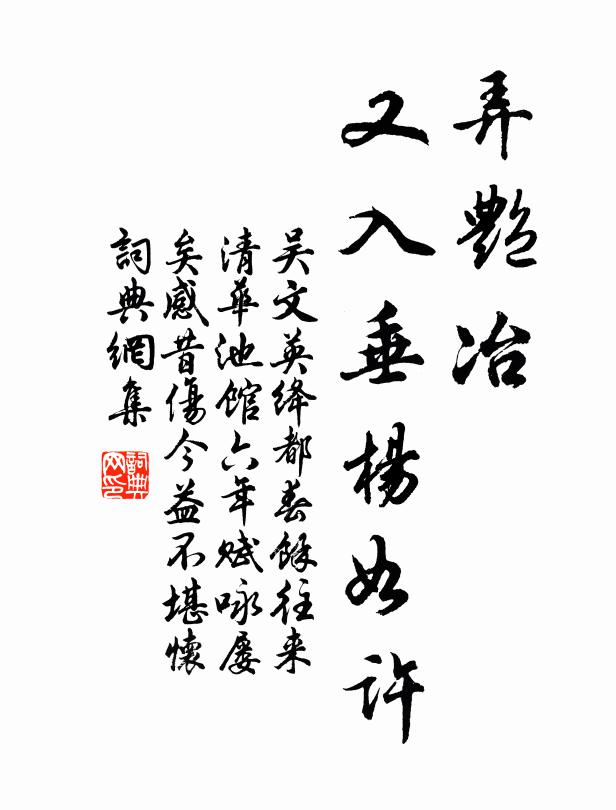 弄艷冶
又入垂楊如許
吴文英绛都春餘往来
清華池馆六年赋咏屡
矣感昔傷今益不堪懷
詞典網集
詞典网印